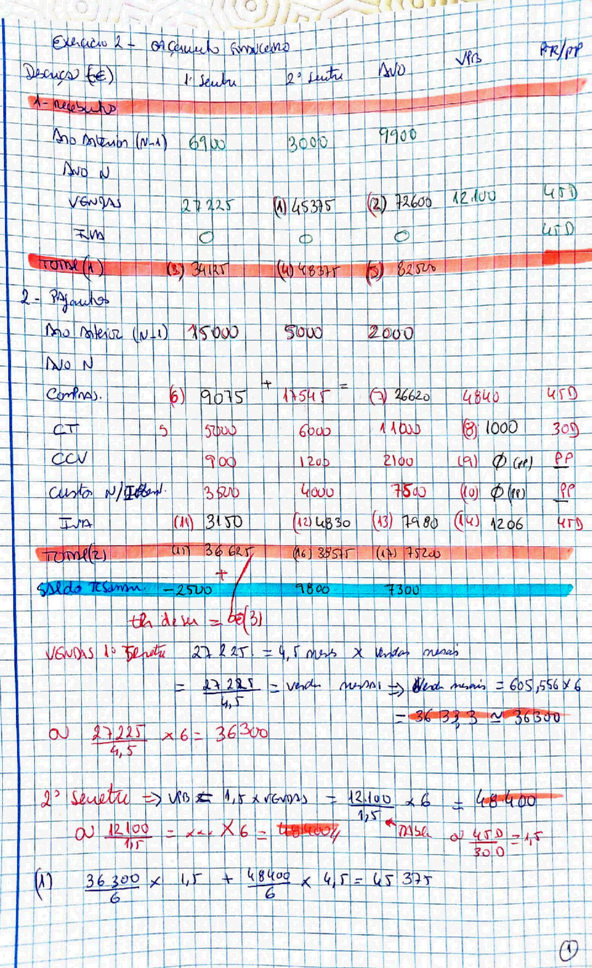 Exercício 2 - orçamento financeiro
Descrição (€) 1º Semestre 2º Semestre ANO VPB PR/PP
1 - recebimentos
Ano Anterior (N-1) 6900 3000 9900
ANO N
VENDAS 27225 (1) 45375 (2) 72600 12.100 45D
IVA 0 0 0 45D
TOTAL (1) (3) 34125 (4) 48375 (5) 82500
2 - Pagamentos
Ano Anterior (N-1) 15000 5000 2000
ANO N
Compras. (6) 9075 + 17545 = (7) 26620 4840 45D
CT 5 5000 6000 11000 (8) 1000 30D
CCV 900 1200 2100 (9) Ø (PP) PP
Custos N/ 3500 4000 7500 (10) Ø (PP) PP
IVA (11) 3150 (12) 4830 (13) 7980 (14) 1206 45D
TOTAL (2) (15) 36625 (16) 38575 (17) 75200
Saldo -2500 + 9800 7300
(3)
VENDAS 1º Semestre 27225 = 4,5 meses x vendas mensais
= 27225/4,5 = vendas mensais => Vendas mensais = 605,556 x 6
= 3633,3 ≈ 36300
ou 27225/4,5 x 6 = 36300
2º Semestre => VPB = 1,5 x VENDAS = 12.100/1,5 x 6 = 48400
ou 12100/1,5 = ... x 6 = 48400 ou 45D/30D = 1,5
(1) 36300/6 x 1,5 + 48400/6 x 4,5 = 45375
1